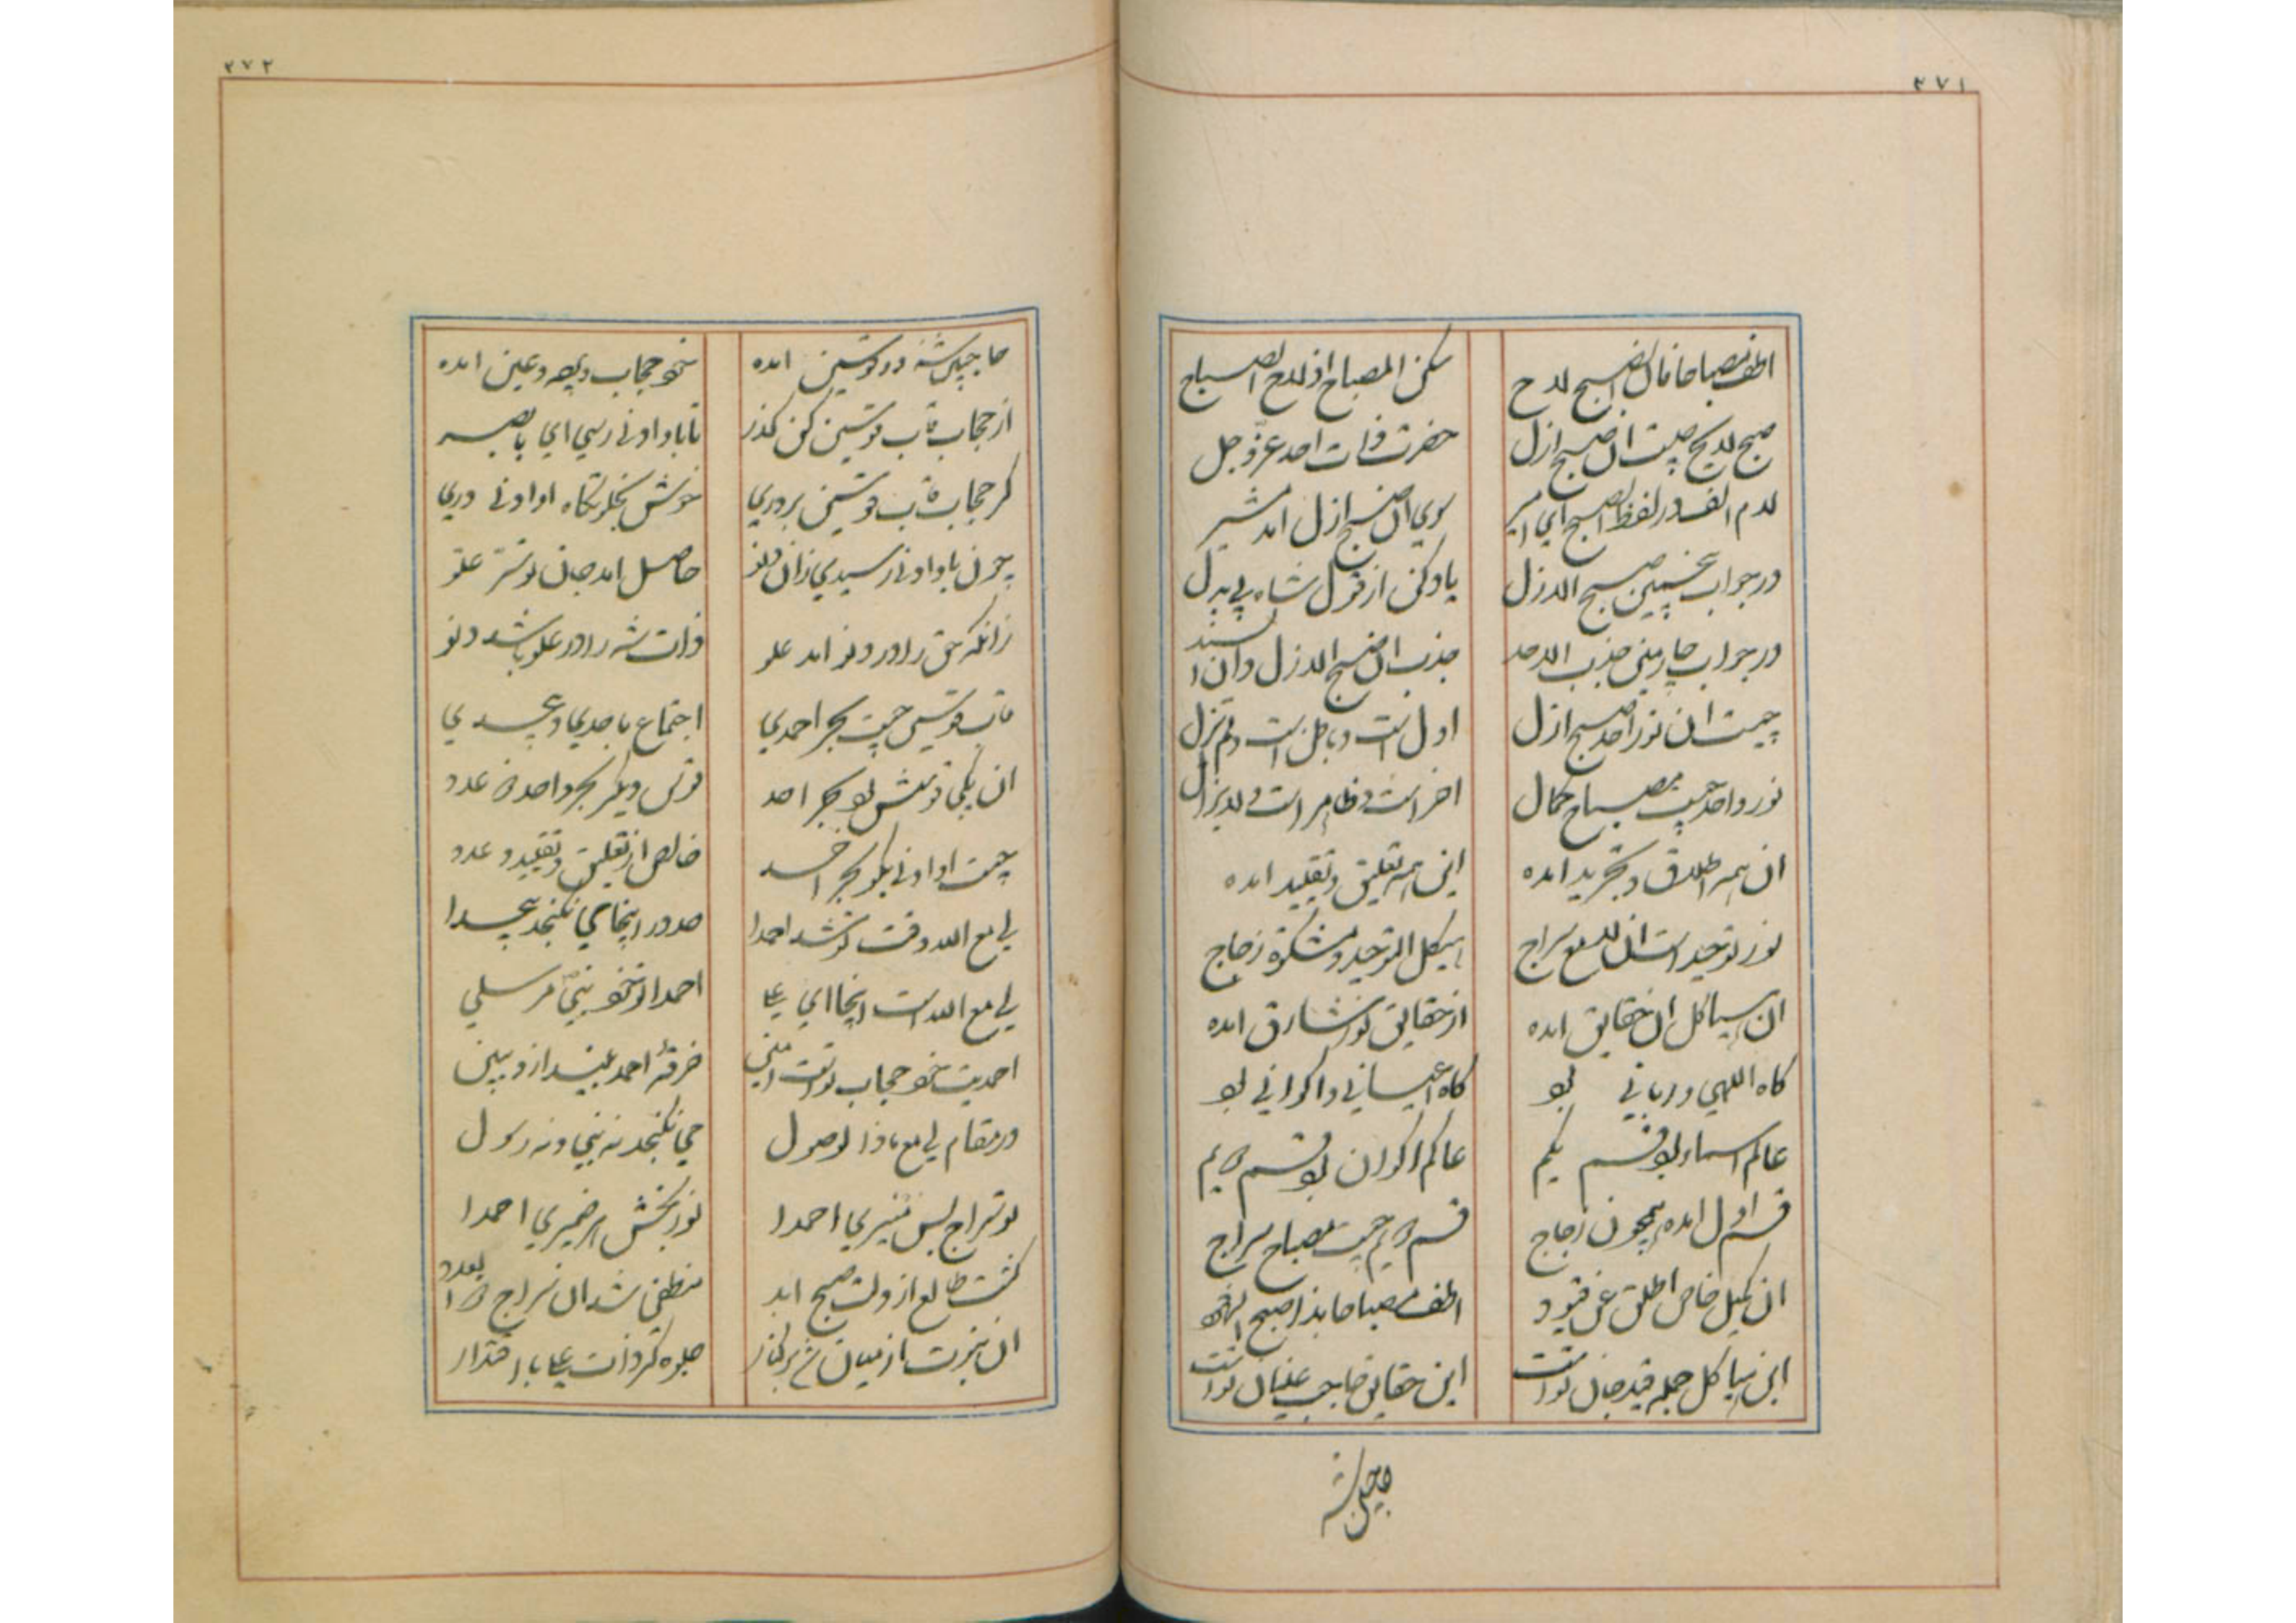 ۳۷۱
اطف مصباحا فان الصبح لاح
سکن المصباح اذ لاح الصباح
صبح لایح چیست آن صبح ازل
حضرت ذات احد عز و جل
لام الف در لفظ الصبح ای امیر
سوی آن صبح ازل آمد مشیر
در جواب پنجمین صبح الازل
یاد کن از قول شاه بی بدل
در جواب چارمین جذب الاحد
جذب آن صبح الازل دان ا سند
چیست آن نور احد صبح ازل
اول است و باطن است و لم یزل
نور واحد چیست مصباح کمال
اخر است و ظاهر است و لایزال
ان همه اطلاق و تجرید امده
این همه تعلیق و تقیید امده
نور توحید است ان لامع سراج
هیکل التوحید و مشکوة زجاج
ان هیاکل ان حقایق امده
از حقایق نور شارق امده
کاه اللهی و ربانی بو
کاه اعیانی و اکوانی بو
عالم اسماء بو قسم یکم
عالم اکوان بو قسم دویم
قسم اول امده همچون زجاج
قسم دویم چیست مصباح سراج
ان کمیل خاص اطلق عن قیود
اطف مصباحا بذا صبح
این هیاکل جمله قید جان تو است
این حقایق حاجب عینان تو است
حاجبین شه
۳۷۲
حاجبین شه در قوسین امده
محو حجاب وجه و عین امده
از حجاب قاب قوسین کن کذر
تا باو ادنی رسی ای با بصر
کر حجاب قاب قوسین بردری
خوش بخلوتکاه او ادنی دری
چون باو ادنی رسیدی زان دنو
حاصل امد جان تو سر علو
زانکه حق را در دنو امد علو
ذات شه را در علو باشد دنو
قاب قوسین چیست بحر احمدی
اجتماع باحدی و بیحدی
ان یکی قوسش بو بحر احد
قوس دیکر بحر واحد در عدد
چیست او ادنی بکو بحر احد
خالص از تعلیق و تقیید و عدد
لی مع الله وقت تو شد احمدا
حد در اینجا می نکنجد بیحدا
لی مع الله است اینجا ای علی
احمدا تو محو نبی مرسلی
احمدیت خو حجاب تو است
خرقه احمد بینداز و ببین
در مقام لی مع ما ذا لوصول
می نکنجد نه نبی و نه رسول
تو سراج بس منیری احمدا
نور بخش هر ضمیری احمدا
کشت طالع از ولت صبح ابد
منطفی شد ان سراج
ان نبوت از میان شد بر کنار
جلوه کر ذات علی با اقتدار